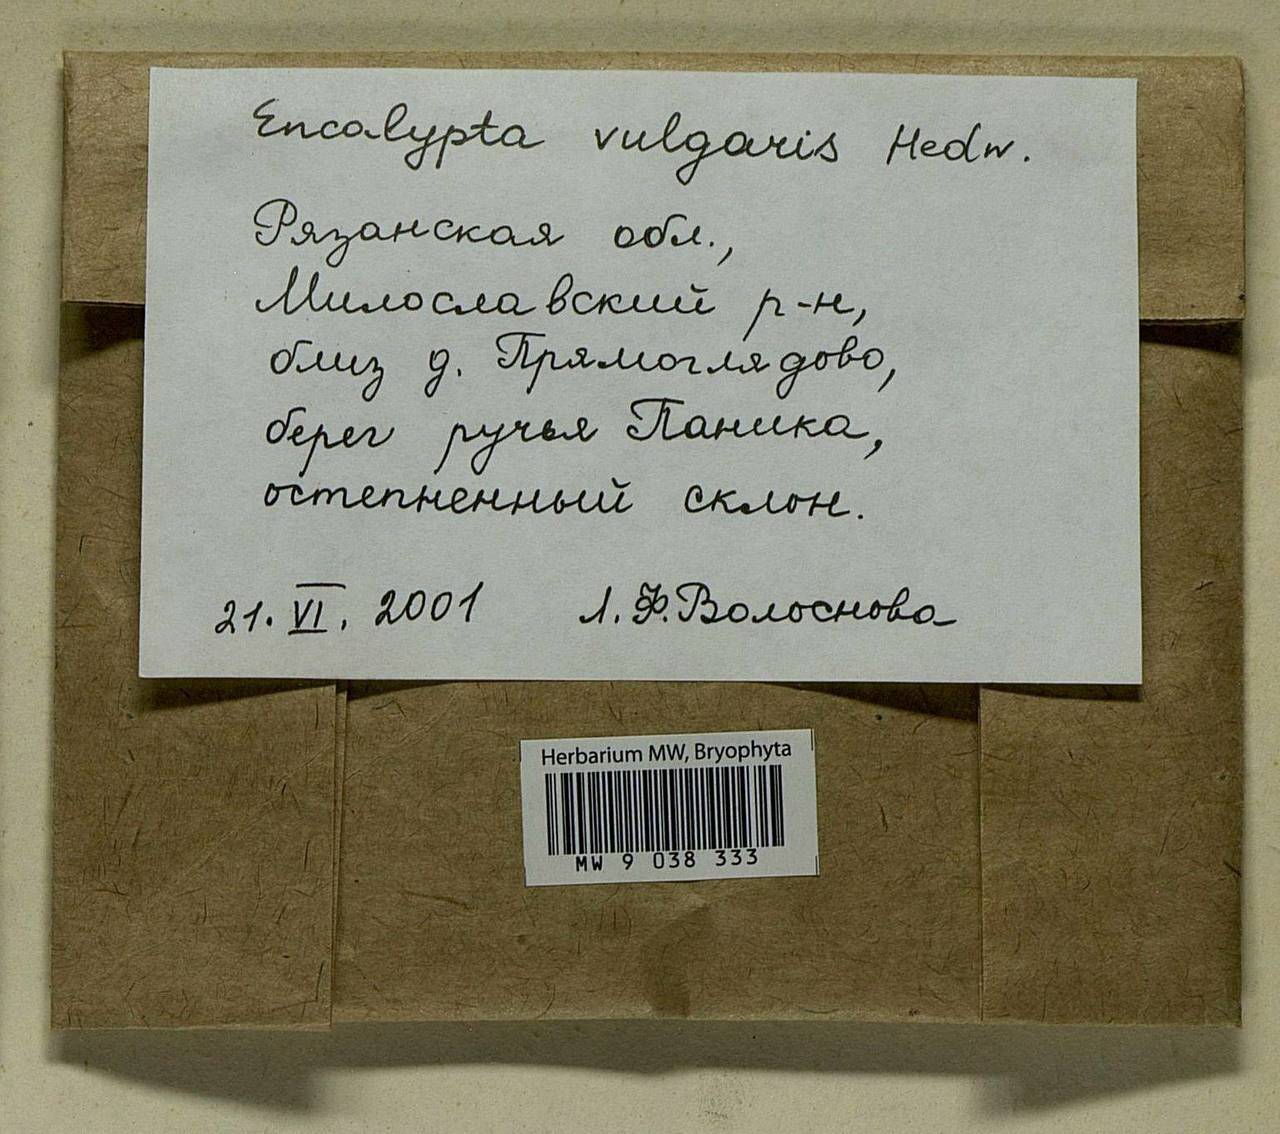 Encalypta vulgaris Hedw.
Рязанская обл.,
Милославский р-н,
близ д. Прямоглядово,
берег ручья Паника,
остепненный склон.
21. VI. 2001 Л. Ф. Волоснова
Herbarium MW, Bryophyta
MW 9 038 333